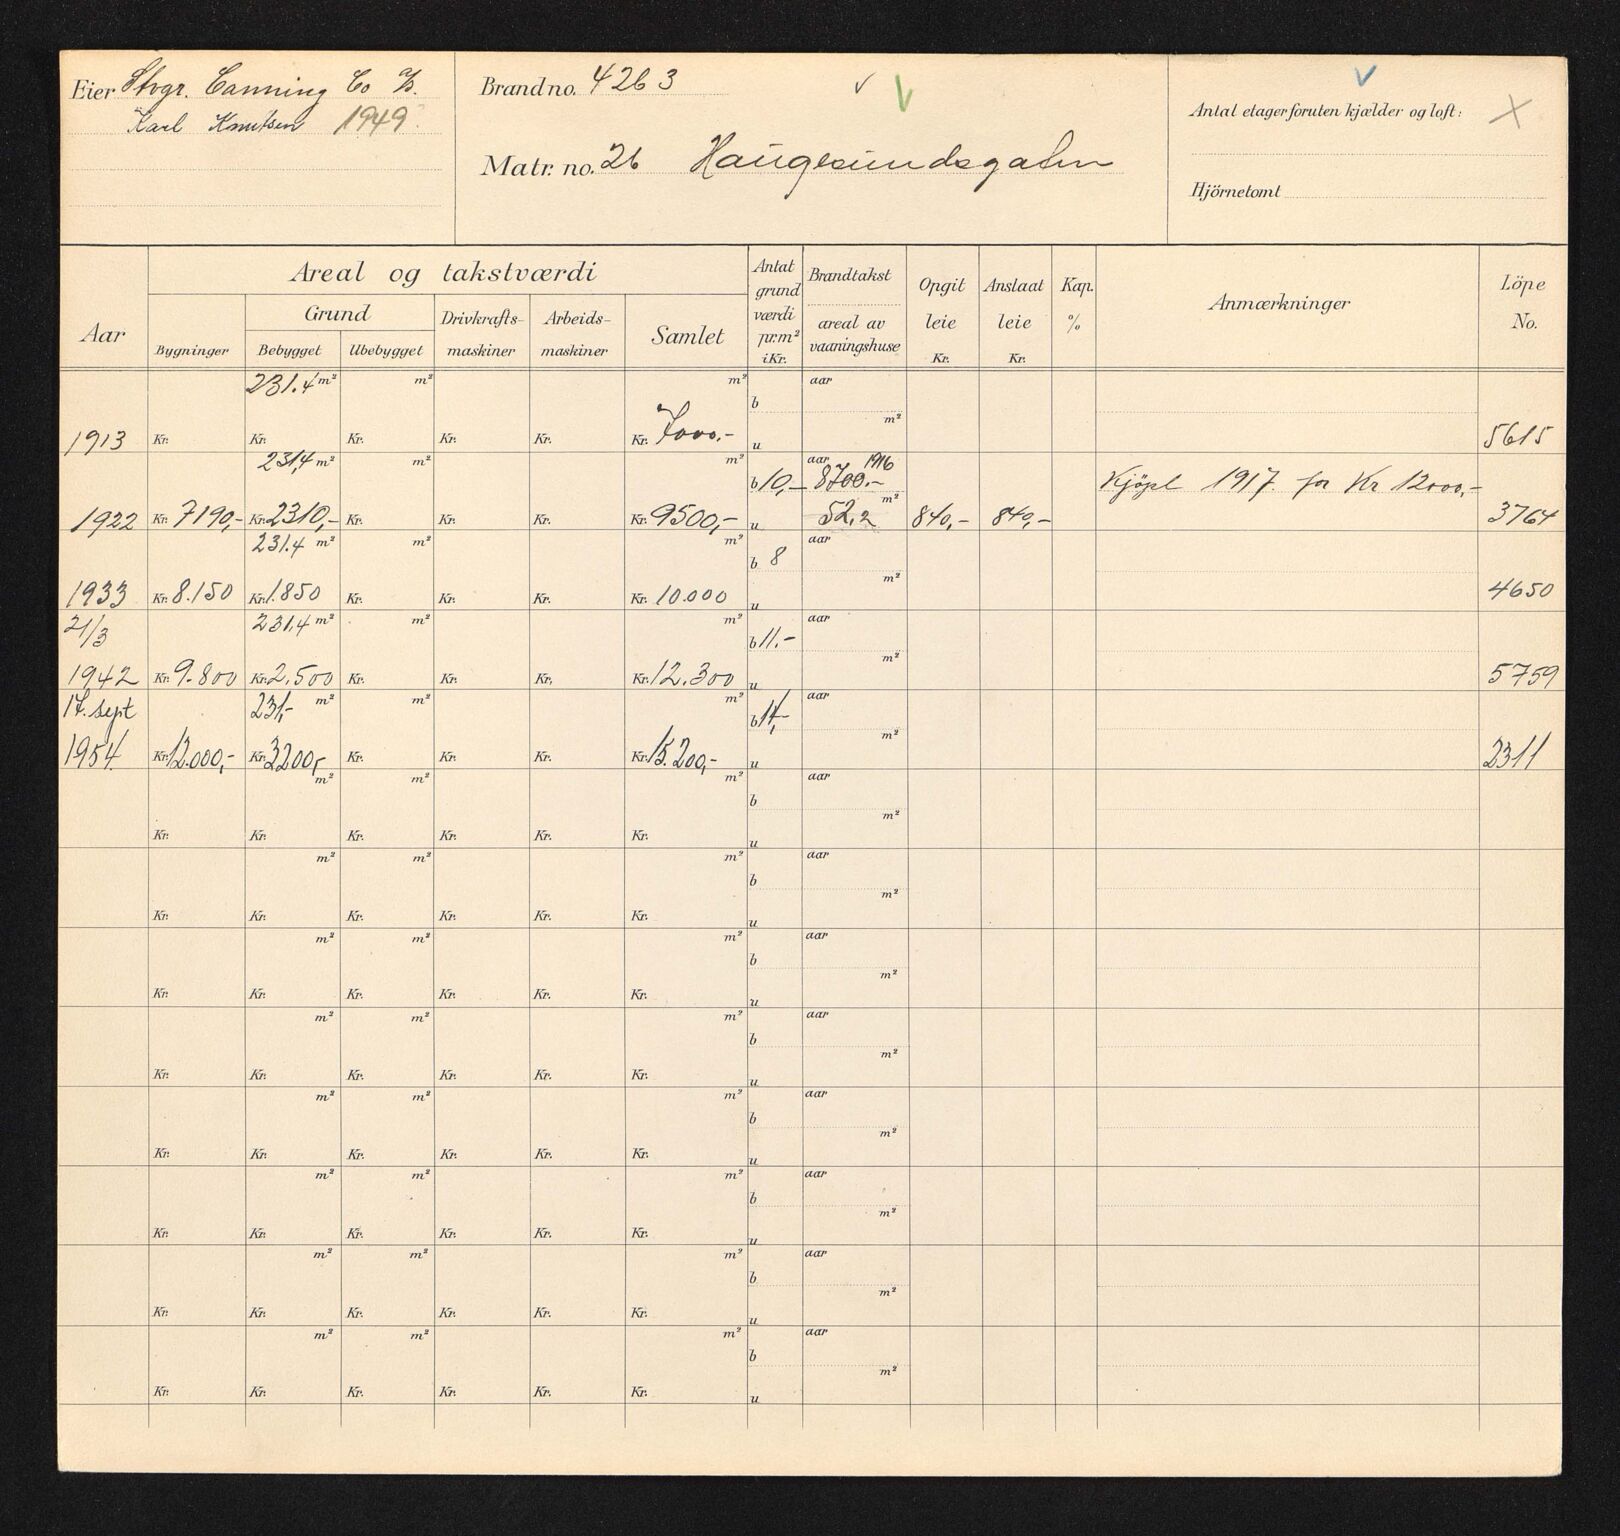 Eier Stvgr. Canning Co A/S.
Karl Knutsen 1949.
Brand no. 4263
Matr. no. 26 Haugesundsgaten
Antal etager foruten kjælder og loft:
Hjörnetomt
Aar
Areal og takstværdi
Grund
Bygninger
Bebygget
Ubebygget
Drivkrafts-
maskiner
Arbeids-
maskiner
Samlet
Antat
grund
værdi
pr. m²
i Kr.
Brandtakst
areal av
vaaningshuse
Opgit
leie
Kr.
Anslaat
leie
Kr.
Kap.
%
Anmærkninger
Löpe
No.
231.4 m² m² m² aar
b
m²
1913 Kr. Kr. Kr. Kr. Kr. Kr. 7000.- u 5615
231,4 m² m² m² aar 1916
b 10,- 8700.- Kjöpt 1917 for Kr 12000,-
m²
1922 Kr. 7190,- Kr. 2310,- Kr. Kr. Kr. Kr. 9500,- u 52,2 840,- 840,- 3764
231.4 m² m² m² aar
b 8
m²
1933 Kr. 8.150 Kr. 1.850 Kr. Kr. Kr. Kr. 10.000 u 4650
21/3 231.4 m² m² m² aar
b 11.-
m²
1942 Kr. 9.800 Kr. 2.500 Kr. Kr. Kr. Kr. 12.300 u 5759
17. sept 231,- m² m² m² aar
b 14,-
m²
1954 Kr. 12.000,- Kr. 3200,- Kr. Kr. Kr. Kr. 15.200,- u 2311
m² m² m² aar
b
m²
Kr. Kr. Kr. Kr. Kr. Kr. u
m² m² m² aar
b
m²
Kr. Kr. Kr. Kr. Kr. Kr. u
m² m² m² aar
b
m²
Kr. Kr. Kr. Kr. Kr. Kr. u
m² m² m² aar
b
m²
Kr. Kr. Kr. Kr. Kr. Kr. u
m² m² m² aar
b
m²
Kr. Kr. Kr. Kr. Kr. Kr. u
m² m² m² aar
b
m²
Kr. Kr. Kr. Kr. Kr. Kr. u
m² m² m² aar
b
m²
Kr. Kr. Kr. Kr. Kr. Kr. u
m² m² m² aar
b
m²
Kr. Kr. Kr. Kr. Kr. Kr. u